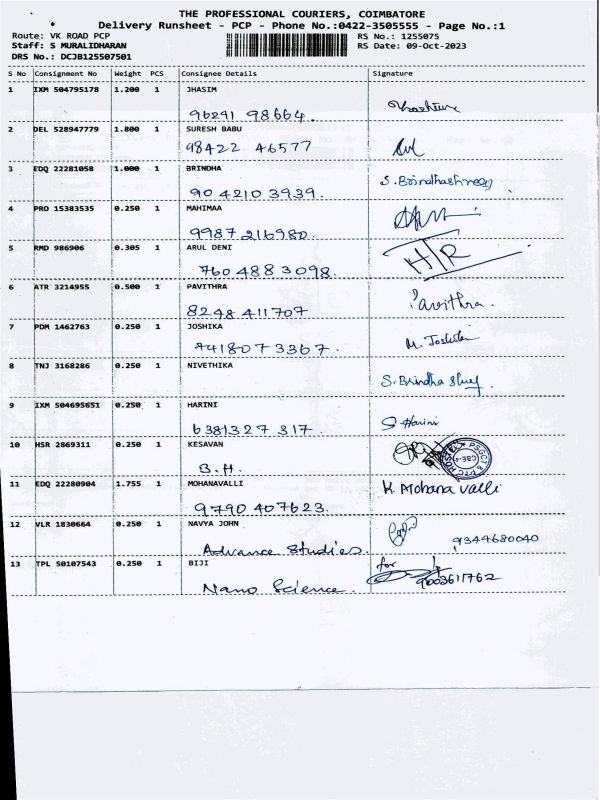 THE PROFESSIONAL COURIERS, COIMBATORE
Delivery Runsheet - PCP - Phone No.:0422-3505555 - Page No.:1
Route: VK ROAD PCP RS No.: 1255075
Staff: S MURALIDHARAN RS Date: 09-Oct-2023
DRS No.: DCJB125507501
S No Consignment No Weight PCS Consignee Details Signature
1 IXM 504795178 1.200 1 JHASIM
96291 98664.
2 DEL 528947779 1.800 1 SURESH BABU
98422 46577
3 EDQ 22281058 1.000 1 BRINDHA
90 42103939. S. Brindhashree
4 PRO 15383535 0.250 1 MAHIMAA
9987216980.
5 RMD 986906 0.305 1 ARUL DENI
760 488 3098. H/R
6 ATR 3214955 0.500 1 PAVITHRA
8248 411707 Pavithra.
7 PDM 1462763 0.250 1 JOSHIKA
9418073367. M. Joshika
8 TNJ 3168286 0.250 1 NIVETHIKA
S. Brindha Shree
9 IXM 504695651 0.250 1 HARINI
6381327 317. S Harini
10 HSR 2869311 0.250 1 KESAVAN
B.H.
11 EDQ 22280904 1.755 1 MOHANAVALLI K Mohana Valli
9790 407623.
12 VLR 1830664 0.250 1 NAVYA JOHN
Advance Studies. 9344680040
13 TPL 50107543 0.250 1 BIJI for
Nano Science. 9003611762